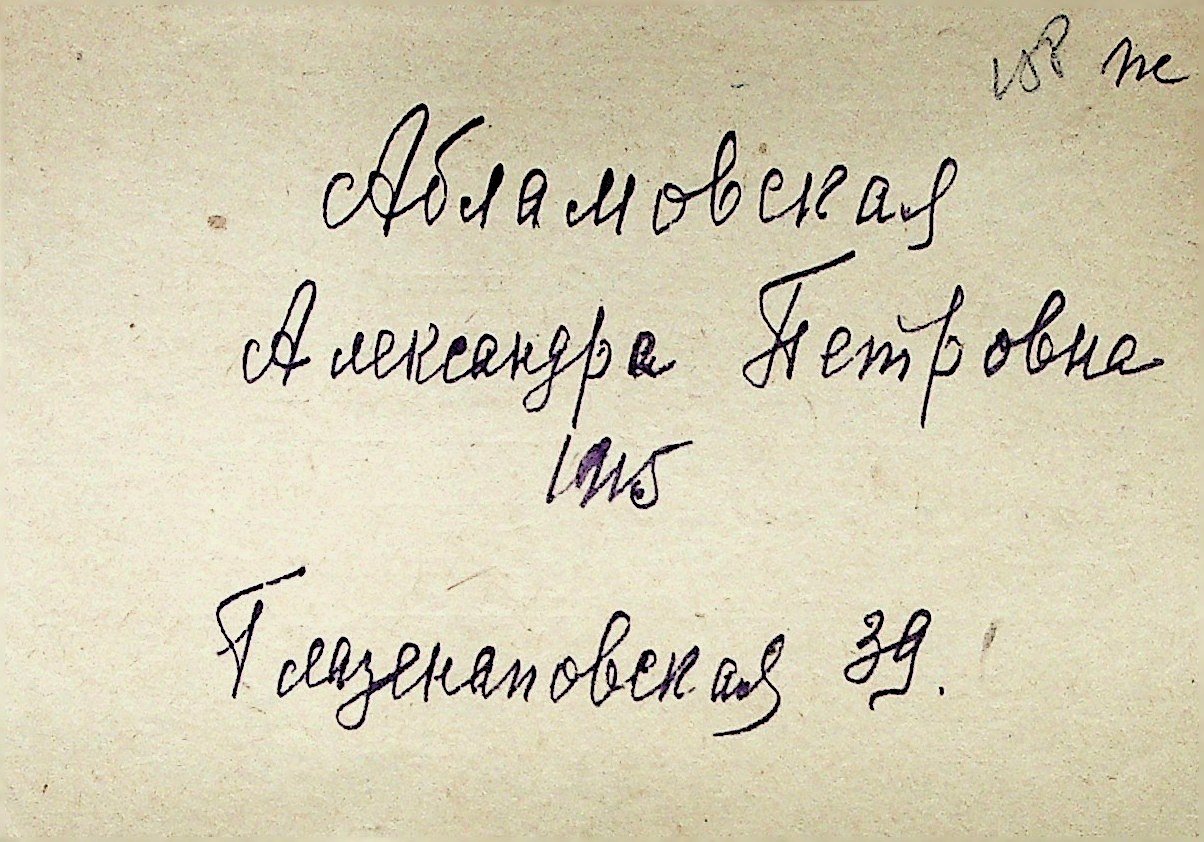 Абламовская
Александра Петровна
1915
Глазенаповская 39.